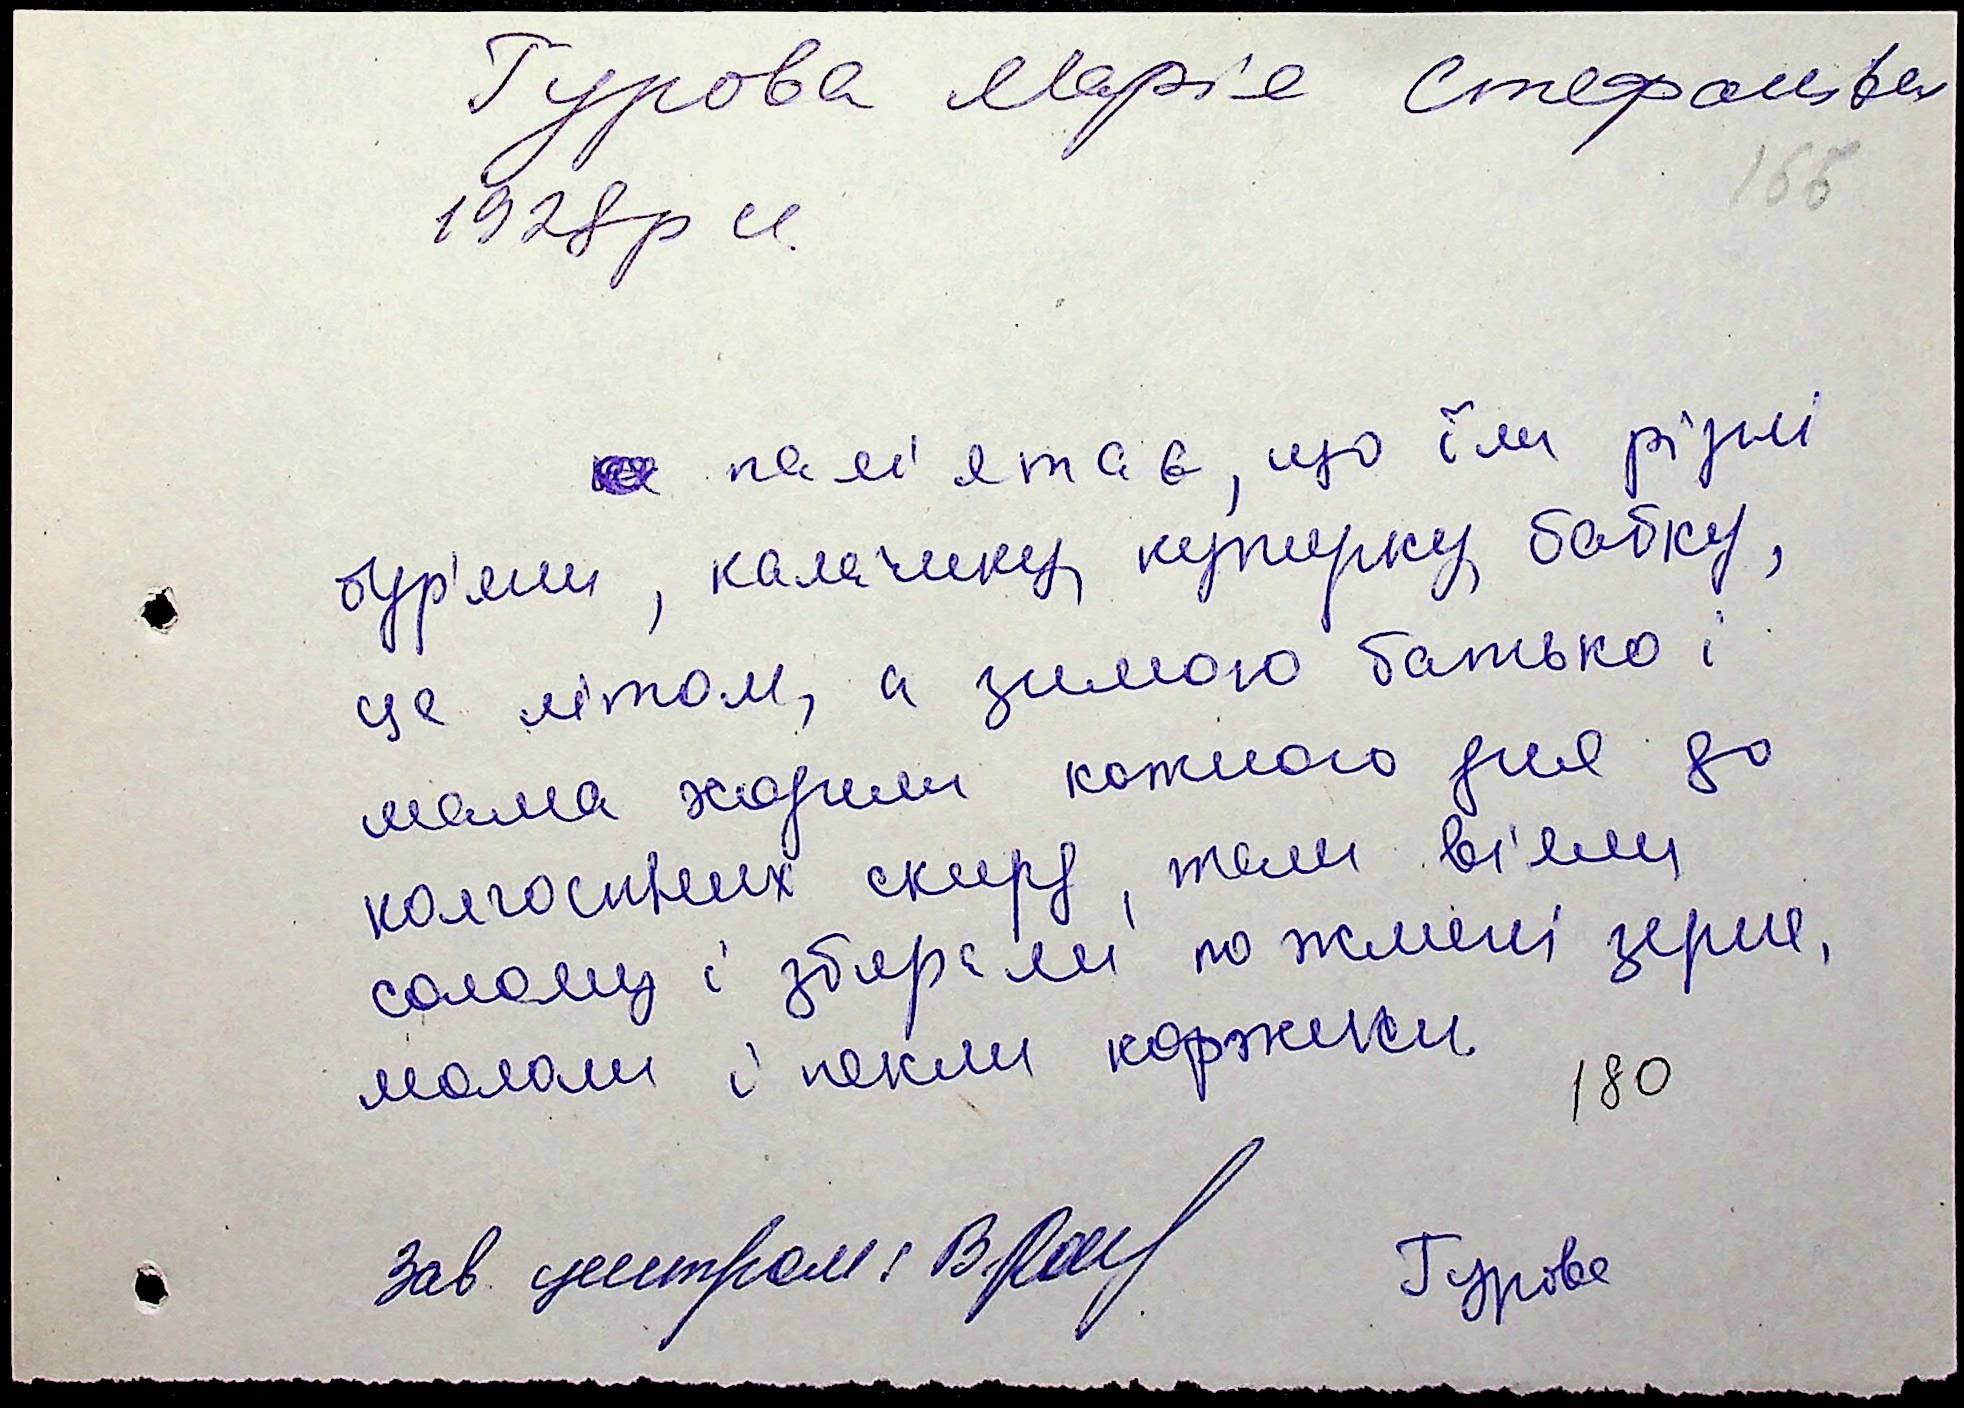 Гурова Марія Стефанівна
166
1928р н.
пам'ятає, що їли різні
бур'яни, калачику, купирку, бабку,
це літом, а зимою батько і
мама ходили кожного дня до
колгоспних скирд, там віяли
солому і збирали по жмені зерна,
мололи і пекли коржики.
180
Зав центром: В.
Гурова